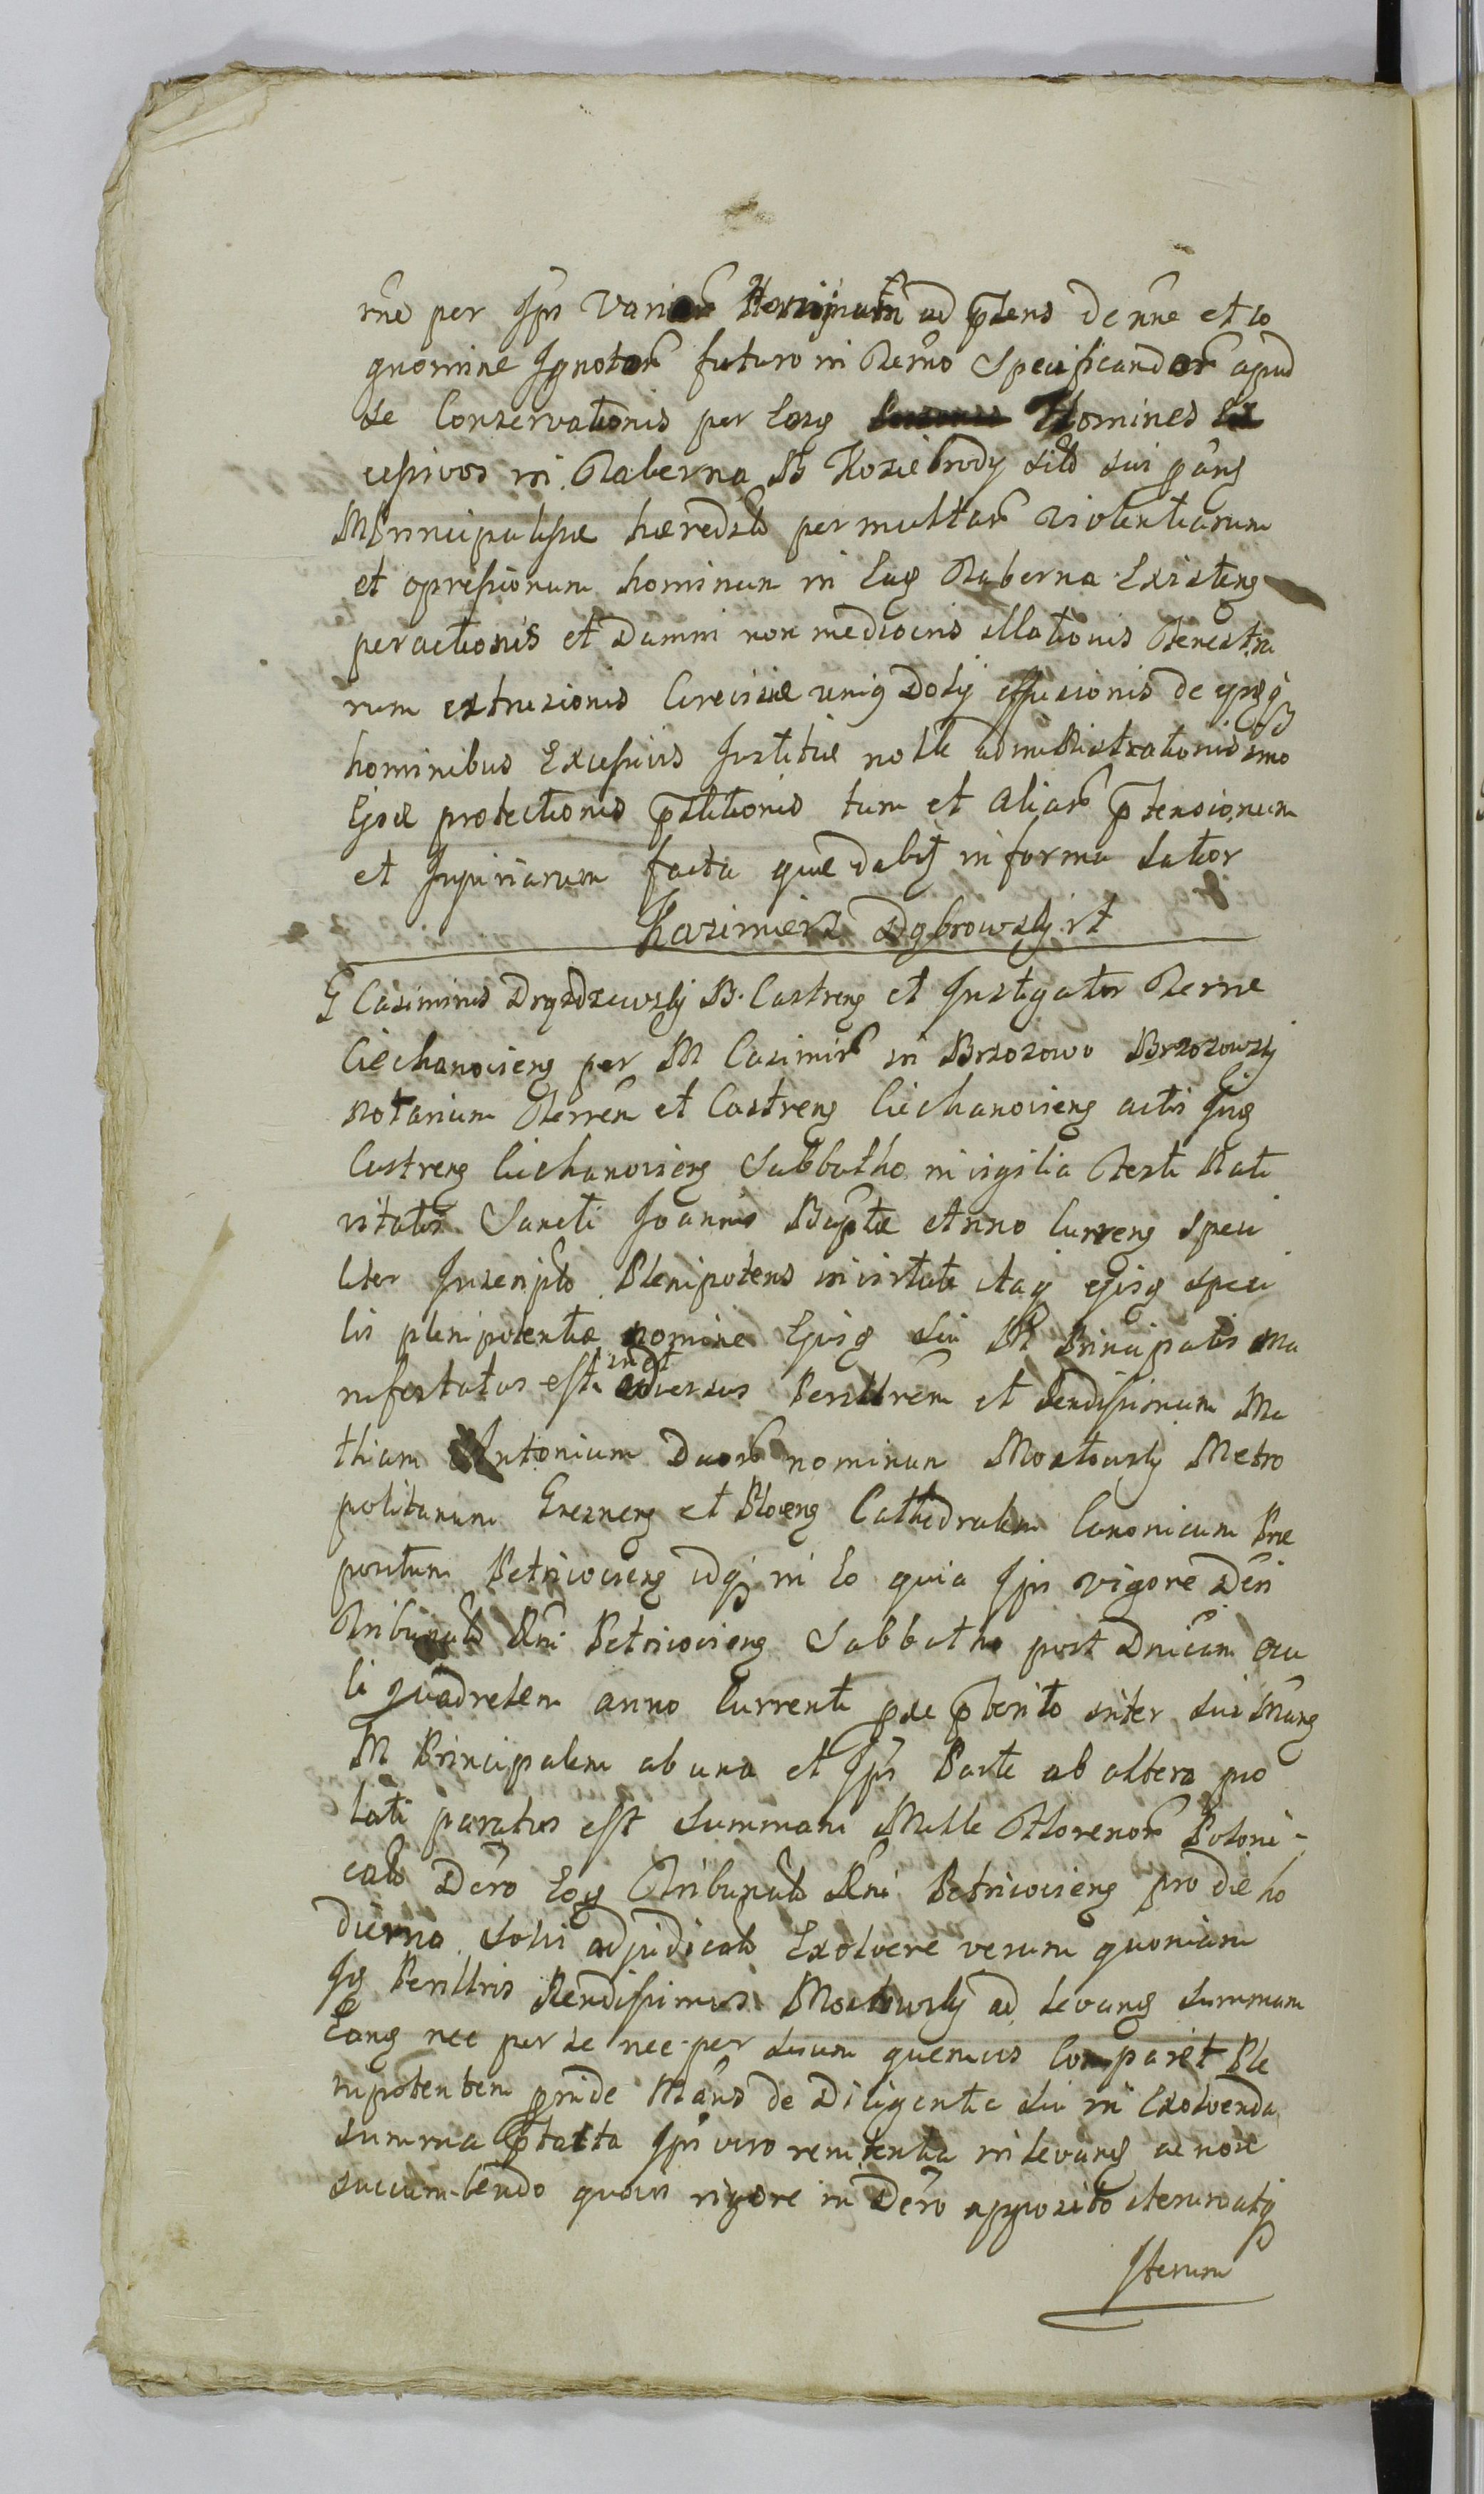 rne per Ipn Varior Hominum ad ptens de nne et co
gnomine Ignotor futuro in Termo Specificandor apud
se Conservationis per Eosg Homines Ex
cessivos in Taberna B Koziebrody sitâ sui pang
MPrincipalisqe haeredsto per multar violentiarum
et opressionum hominum in Eag Taberna Existeng
peractionis et Damni non mediocris illationis Fenestra
rum extrusionis Cerevisiae unig Dolij effusionis de eisdg
hominibus Excessivis Justitiae nolle administrationis imo
Ejsd protectionis pstitionis tum et Aliar ptensionum
et Injuriarum facta quae dabit in forma latior
Kazimierz Dąbrowskj rt
G Casimirus Drązdzewskj B. Castreng et Instigator Terrae
Ciechanovieng per M Casimir in Brzozowo Brzozowskj
Notarium Terren et Castreng Ciechanovieng actis Jug
Castreng Ciechanovieng Sabbatho in vigilia Festi Nati
vitatis Sancti Joannis Baptae Anno Curreng speci
liter Inscripto Plenipotens in virtute itaq ejusg speci
lis plenipotentiae nomine Ejusg sui M Principalis Ma
nifestatus est inet adversus Perillrem et Rendissimum Ma
thiam Antonium Duor nominum Mostowskj Metro
politanum Gnesneng et Ploceng Cathedralem Canonicum Prae
positum Petricovieng idq in Eo quia Ipn vigore Dei
Tribunalis Rni Petricovieng Sabbatho post Dnicam ocu
li quadrelem anno Currenti pxe pterito inter sui Mang
M Principalem ab una et Ipn Parte ab altera pro
lati paratus est Summam Mille Florenor Poloni-
calo Dero Eog Tribunals Rni Petricovieng pro die ho
dierna solvi adjudicato Exolvere verum quoniam
Ig Perillris Rendissimus Mostowskj ad levang Summam
Eang nec per se nec per suum quemvis Comparet Ple
nipotentem proinde Mans de Diligentia sui in Exolvenda
Summa pstatta Ipn vero renitentia in levang ac non
succumbendo quovis rigore in Dero apposito iterumatq
Iterum